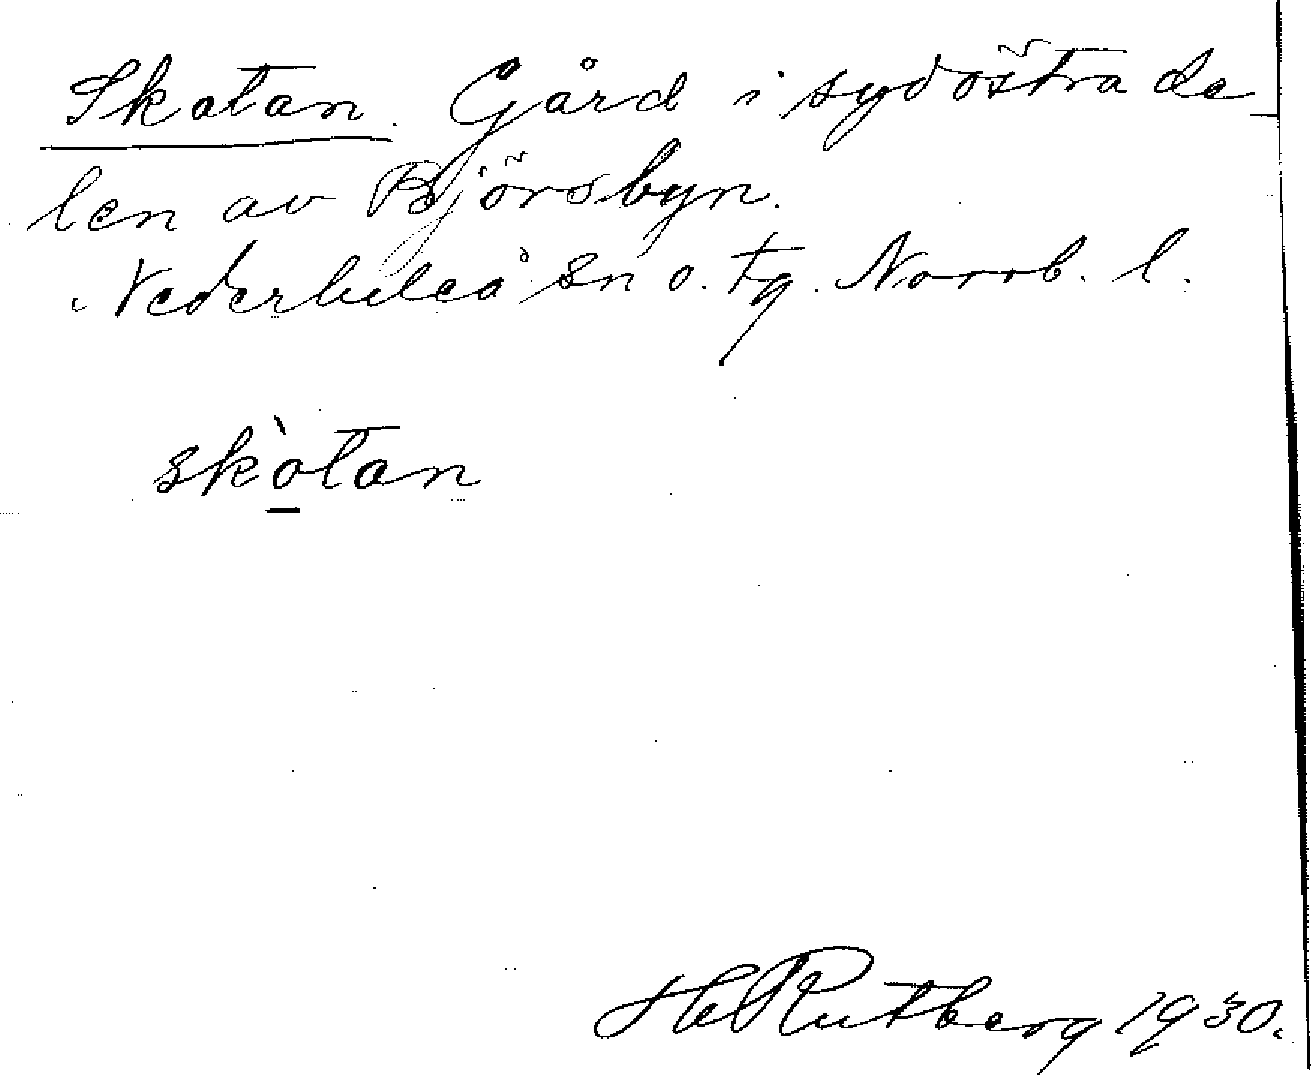 Skatan. Gård i sydöstra de-
len av Björsbyn.
Nederluleå sn o. tg. Norrb. l.
skòtan
H Rutberg 1930.